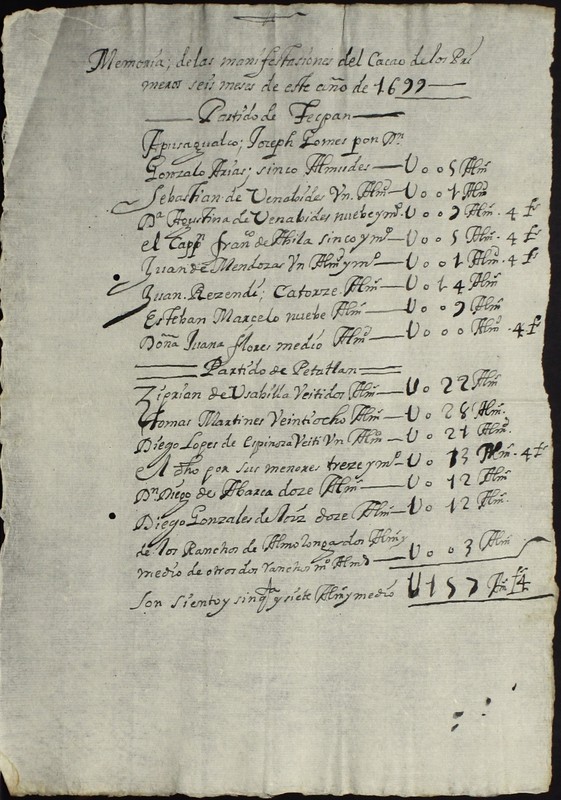 Memoria; de las manifestasiones del Cacao de los Pri
meros seis meses de este año de 1699
Partido de Tecpan
Apusagualco; Joseph Gomes por Dn
Gonzalo Arias; sinco Almudes — U 0 0 5 Alms
Sebastian de Venabides Vn Almd — U 0 0 1 Alm
Da Agustina de Venabides nuebe y mo — U 0 0 9 Alms. 4 fs
el Cappn Franco de Abila sinco y mo — U 0 0 5 Alms 4 fs
Juan de Mendoza Vn Almd y mo — U 0 0 1 Alm. 4 fs
Juan Rezendi; Catorze Alms — U 0 1 4 Alms
Esteban Marcelo nuebe Alms — U 0 0 9 Alms
Doña Juana flores medio Almd — U 0 0 0 Alms. 4 fs
Partido de Petatlan
Ziprian de Vsabilla Veitidos Alms — U 0 22 Alms
Thomas Martines Veintiocho Alms — U 0 28 Alms.
Diego Lopes de Espinoza Veiti Vn Alms — U 0 21 Alms.
el dho por sus menores treze y mo — U 0 13 Alms. 4 fs
Dn Diego de Abarca doze Alms — U 0 12 Alms
Diego Gonzales de doze Alms — U 0 12 Alms.
de los Ranchos de Almolonga dos Alms y
medio de otros dos ranchos mo Almd — U 0 0 3 Alms
Son siento y sinqta y siete Alms y medio U 157 As f4